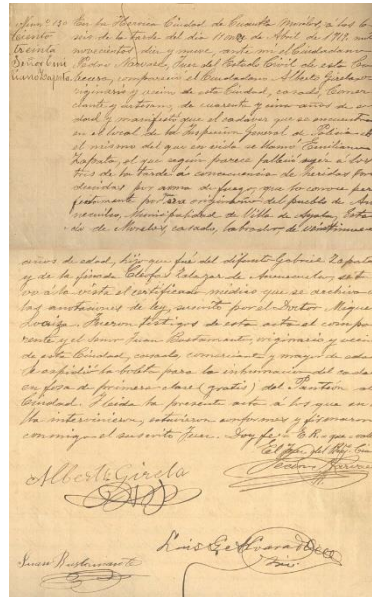 ciento
treinta
Señor Emi
liano Zapata
En la Heroica Ciudad de Cuautla Morelos, a las
de la tarde del día 11 de Abril de 1919, mil
novecientos diez y nueve, ante mí el Ciudadano
Juez del Estado Civil de esta
compareció el Ciudadano Alberto Girela
originario y vecino de esta Ciudad, casado, Comer
ciante y de cuarenta y cinco años de e
dad y manifestó que el cadáver que se encuentra
en el local de la Inspección General de Policía es
el mismo del que en vida se llamó Emiliano
Zapata, el que según parece falleció ayer a las
tres de la tarde á consecuencia de heridas pro
ducidas por arma de fuego, que lo conoce per
fectamente por ser originario del pueblo de Ane
necuilco, Municipalidad de Villa de Ayala, Esta
do de Morelos, casado, labrador, de
años de edad, hijo que fué del difunto Gabriel Zapata
y de la finada Salazar de Anenecuilco, se tu
vo á la vista el certificado médico que se archiva
las anotaciones de ley, suscrito por el Doctor Miguel
Loaiza. Fueron testigos de esta acta el compa
rente y el Señor Juan Bustamante, originario y veci
de esta Ciudad, casado, comerciante y mayor de edad
Se expidió la boleta para la inhumación del cada
en fosa de primera clase (gratis) del Panteón
Ciudad. Leída la presente acta á los que en
lla intervinieron, estuvieron conformes y firmaron
conmigo el suscrito Juez. Doy fé.
El Juez del
Alberto Girela
Juan Bustamante
Luis G.